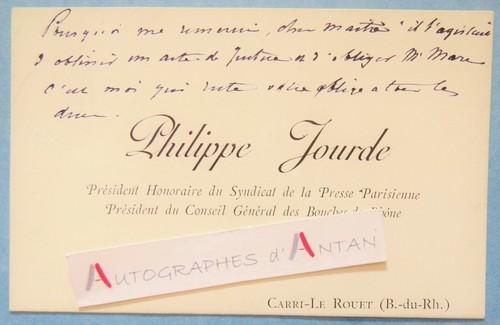 Pourquoi me remercier, cher maître il s'agissait
d'obtenir un acte de justice et d'obliger Mr Marc
c'est moi qui reste votre obligé à tous les
deux.
Philippe Jourde
Président Honoraire du Syndicat de la Presse Parisienne
Président du Conseil Général des Bouches du Rhône
AUTOGRAPHES d'ANTAN
CARRI-LE ROUET (B.-du-Rh.)